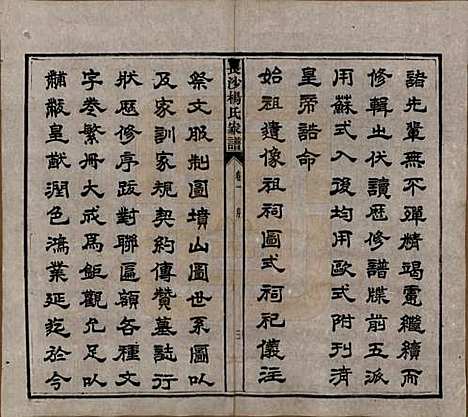 諸先輩無不殫精竭慮繼續而
修輯之伏讀歷修譜牒前五派
用蘇式入後均用歐式附刊清
皇帝誥命
始祖遺像祖祠圖式祠祀儀注
長沙楊氏家譜
卷一
序
三
祭文服制圖墳山圖世系圖以
及家訓家規契約傳贊墓誌行
狀歷修序跋對聯匾額各種文
字卷繁冊大成爲鉅觀允足以
黼黻皇猷潤色鴻業延茲於今